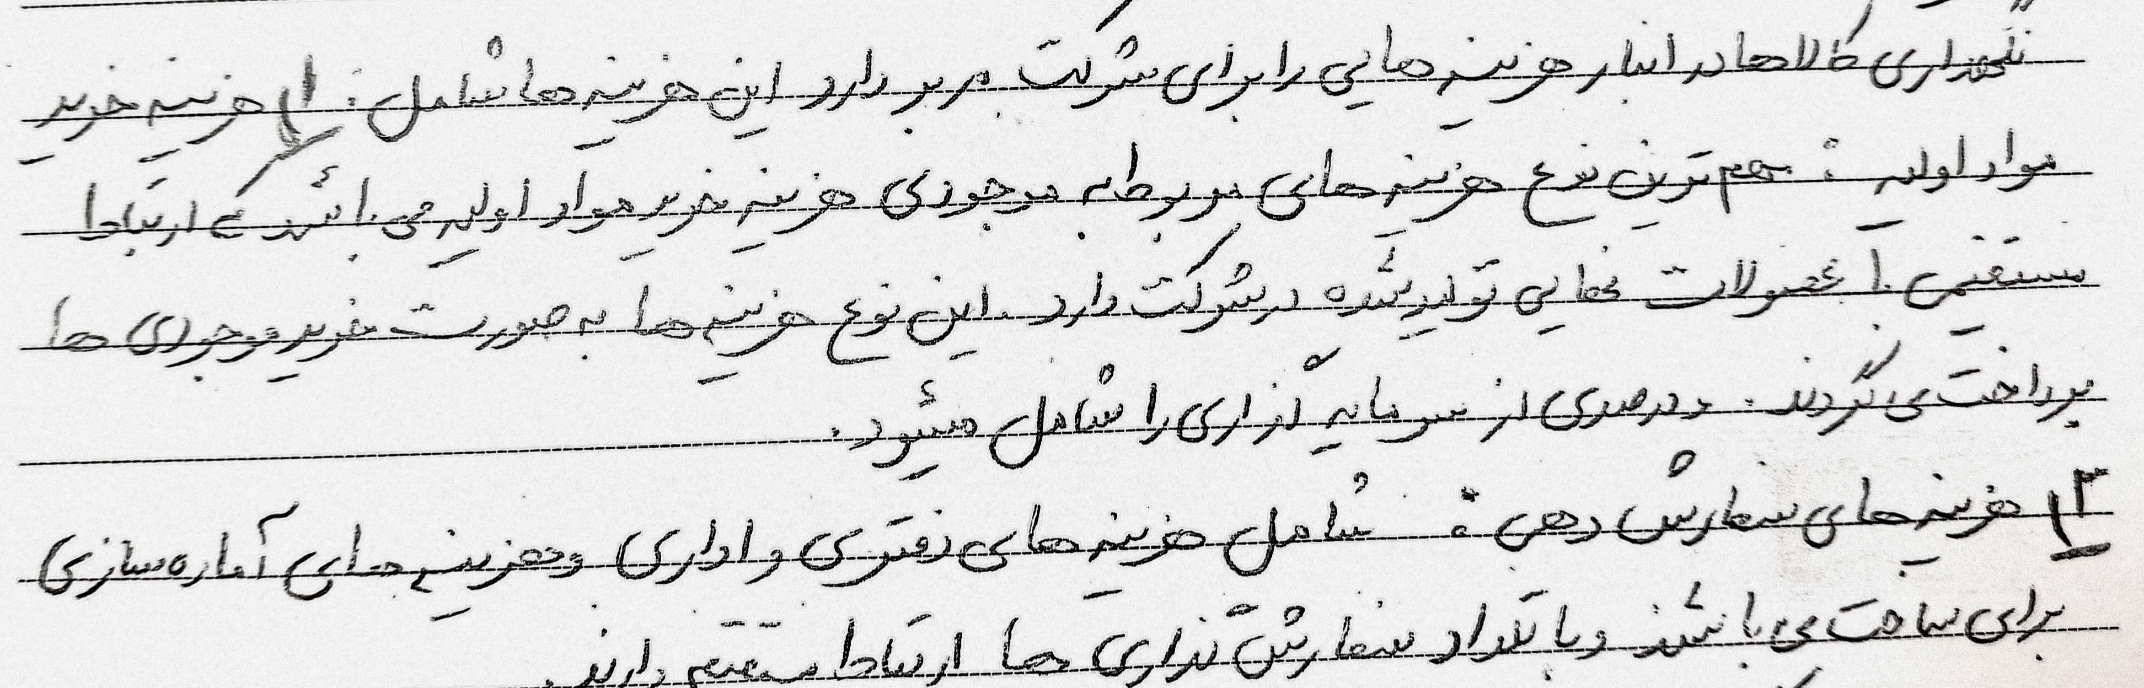 نگهداری کالاها در انبار هزینه هایی را برای شرکت در بر دارد این هزینه ها شامل : ۱) هزینه خرید
مواد اولیه : مهم ترین نوع هزینه های مربوط به موجودی هزینه خرید مواد اولیه می باشد که ارتباط
مستقیمی با محصولات نهایی تولید شده در شرکت دارد . این نوع هزینه ها به صورت خرید موجودی ها
پرداخت می گردند . و درصدی از سرمایه گذاری را شامل میشود .
۲) هزینه های سفارش دهی : شامل هزینه های دفتری و اداری و هزینه های آماده سازی
برای ساخت می باشند و با تعداد سفارش گذاری ها ارتباط مستقیم دارند .